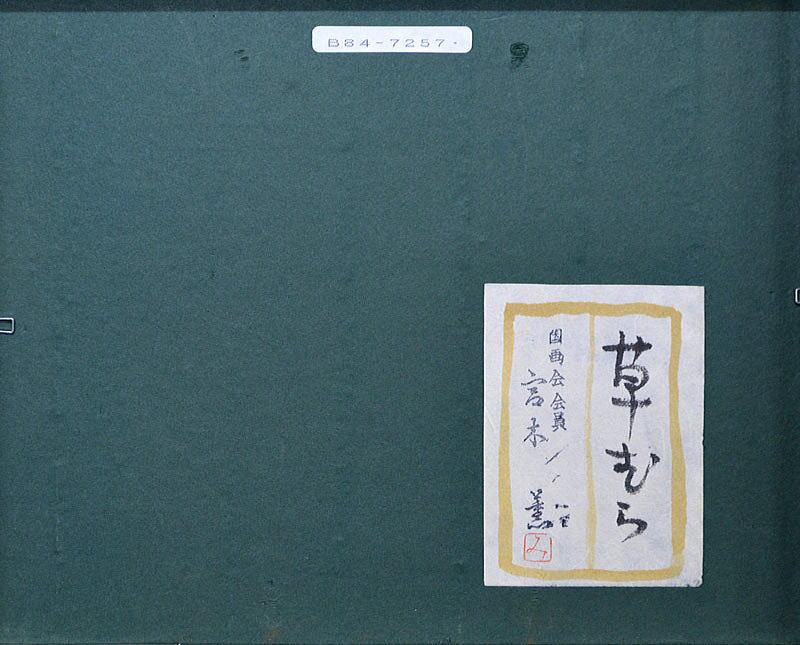 B84-7257
草むら
国画会会員
宮本
み